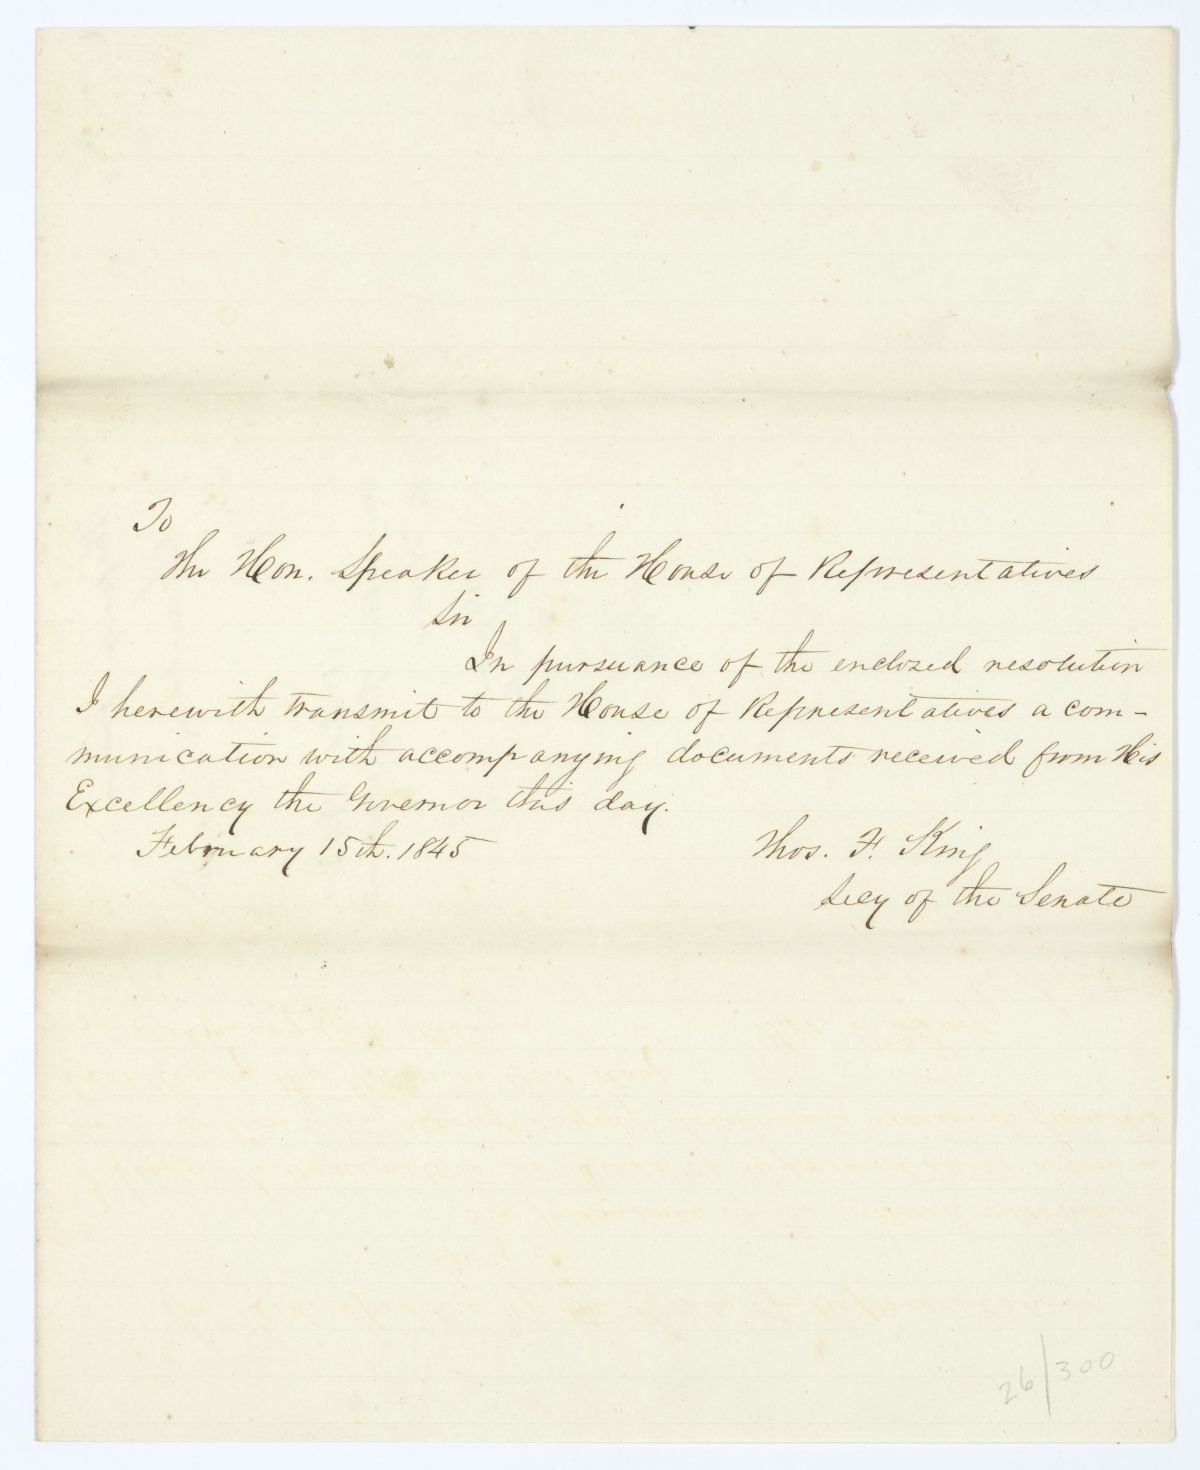 To
The Hon. Speaker of the House of Representatives
Sir
In pursuance of the enclosed resolution
I herewith transmit to the House of Representatives a com-
munication with accompanying documents received from His
Excellency the Governor this day.
February 15th. 1845
Thos. F. King
Secy of the Senate
26/300